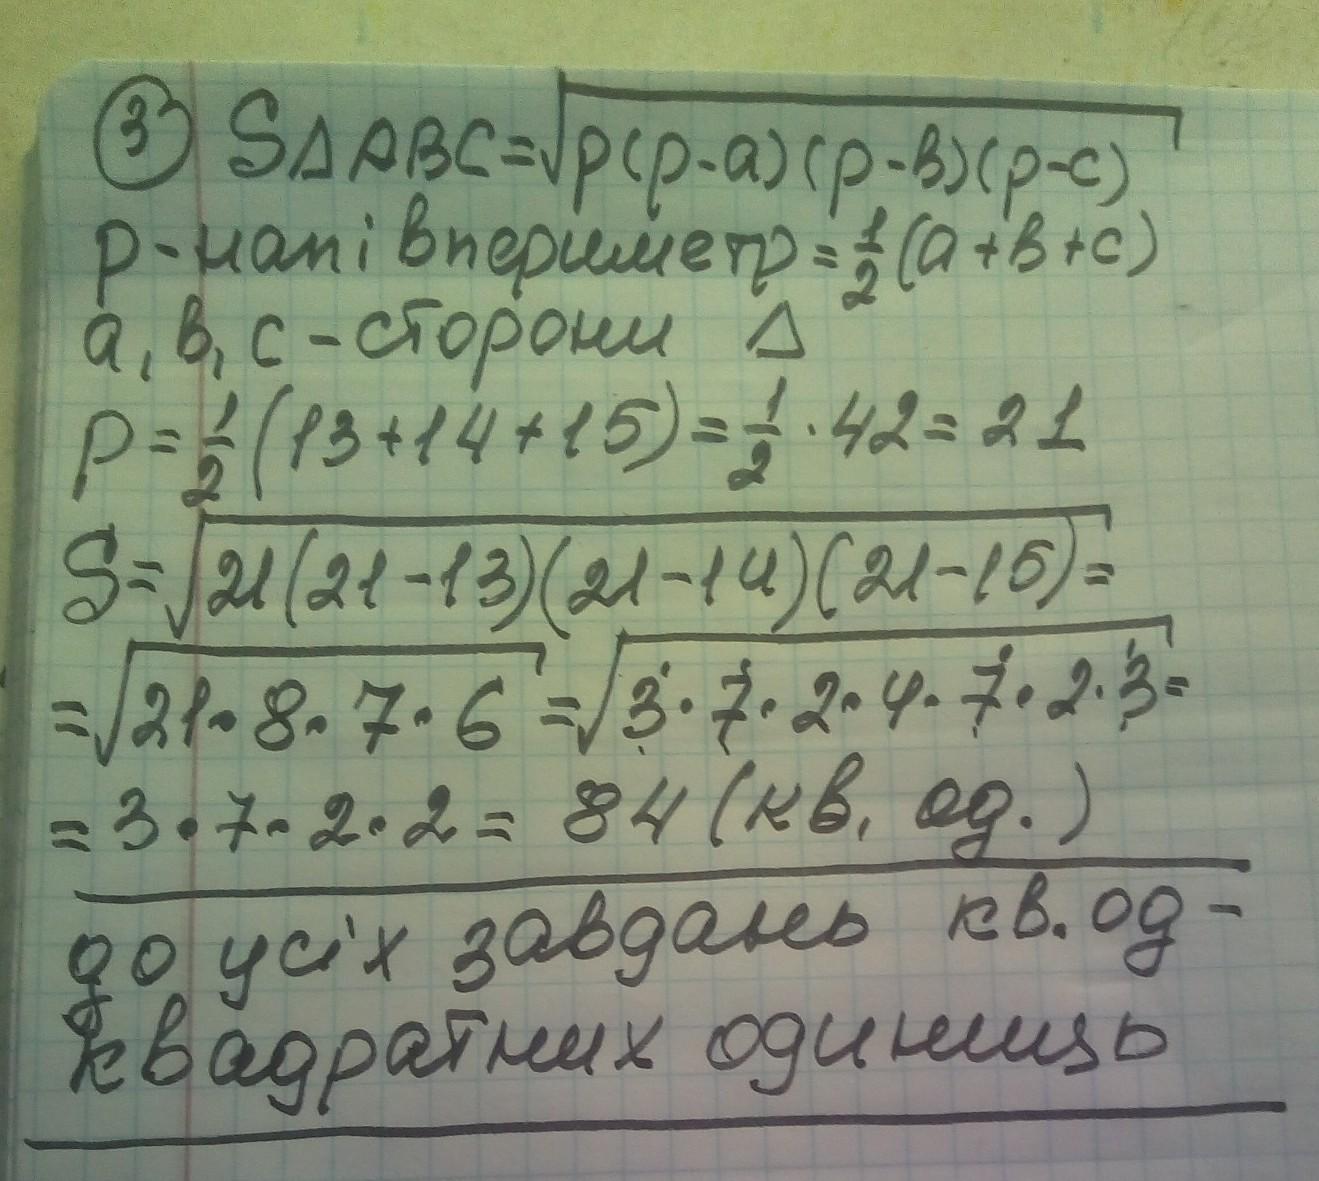 3 S△ABC=√p(p-a)(p-в)(p-c)
p-напівпериметр=1/2(a+в+c)
a, в, c - сторони △
p=1/2(13+14+15)=1/2·42=21
S=√21(21-13)(21-14)(21-15)=
=√21·8·7·6=√3·7·2·4·7·2·3=
=3·7·2·2=84(кв. од.)
до усіх завдань кв. од-
квадратних одиниць